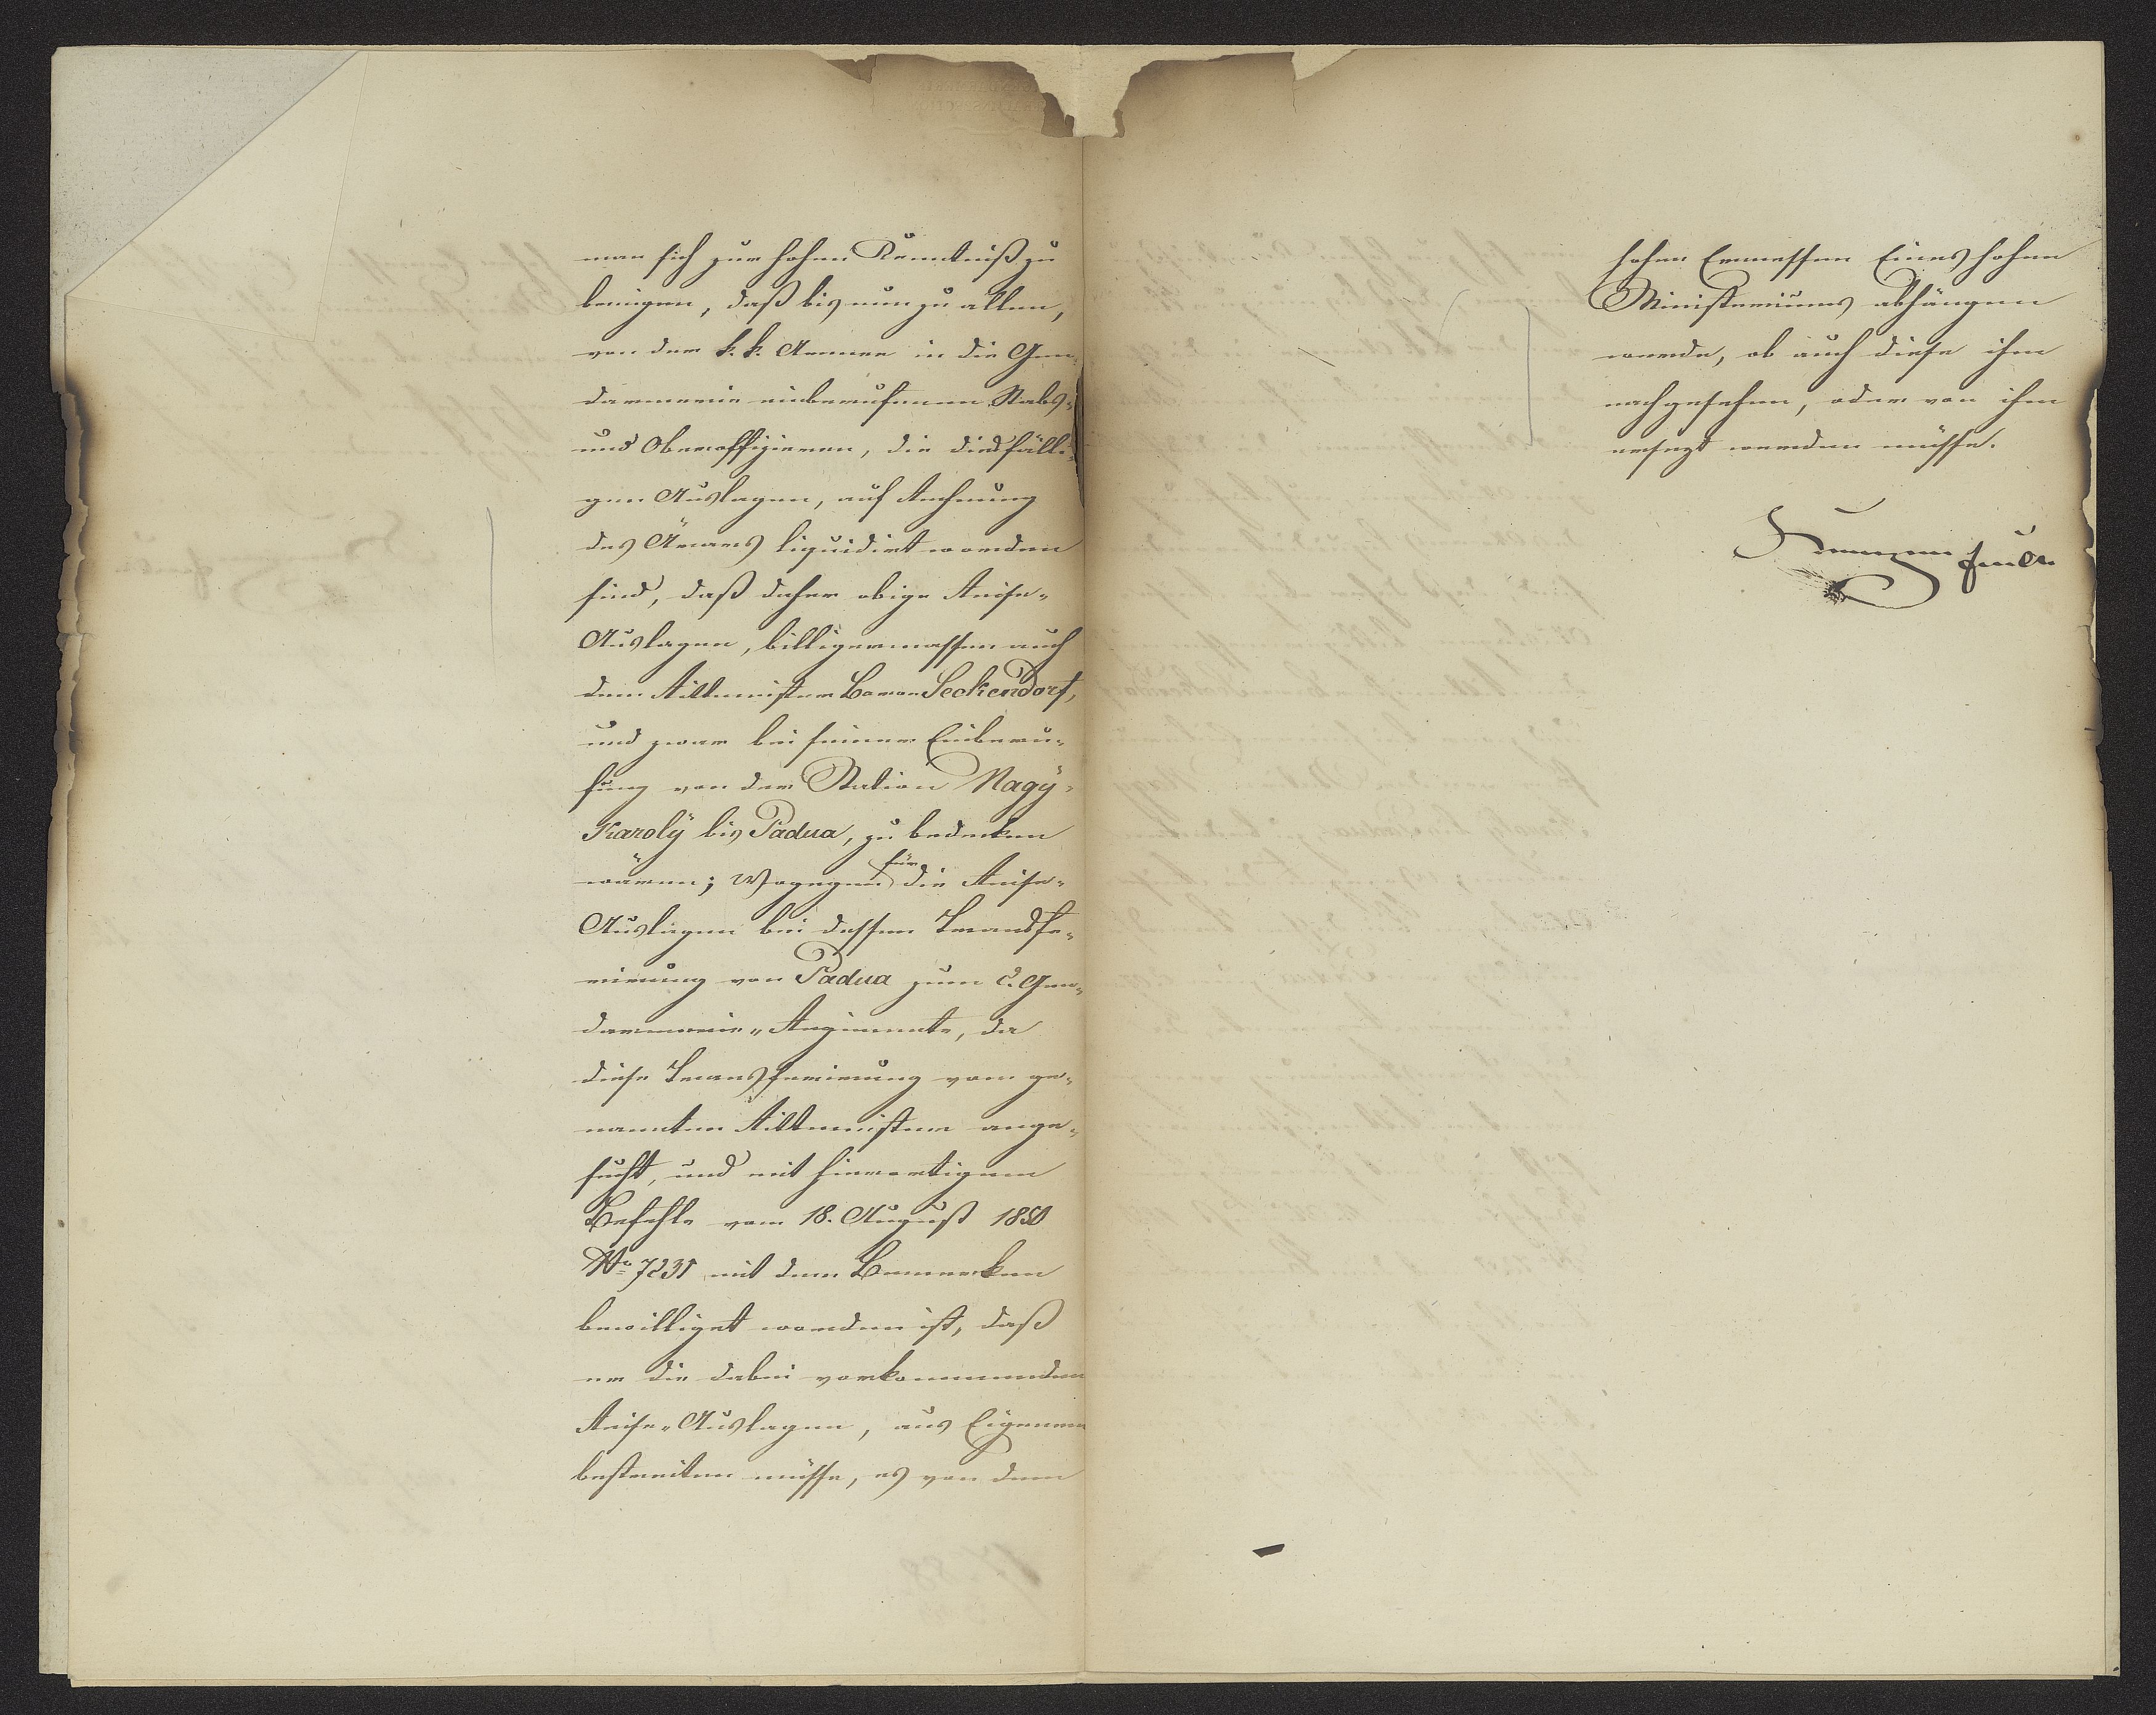 man sich zur hohen Kenntniß zu
bringen, daß bis nun zu allen,
von der k. k. Armee in die Gen-
darmerie einberufenen Stabs-
und Oberoffizieren, die dießfälli-
gen Auslagen, auf Rechnung
des Ärars liquidirt worden
sind, daß daher obige Reise-
Auslagen, billigermassen auch
dem Rittmeister Baron Seckendorf,
und zwar bei seiner Einberu-
fung von der Station Nagÿ-
Karolÿ bis Padua, zu bedecken
wären; Wogegen für die Reise-
Auslagen bei dessen Transfe-
rierung von Padua zum 2. Gen-
darmerie-Regimente, da
diese Transferierung vom ge-
nannten Rittmeister ange-
sucht, und mit hierortigem
Befehle vom 18. August 1850
No 7231 mit dem Bemerken
bewilliget worden ist, daß
er die dabei vorkommenden
Reise-Auslagen, aus Eigenem
bestreiten müsse, es von dem
hohen Ermessen Eines hohen
Ministeriums abhängen
werde, ob auch diese ihm
nachgesehen, oder von ihm
ersezt werden müsse.
Kempen